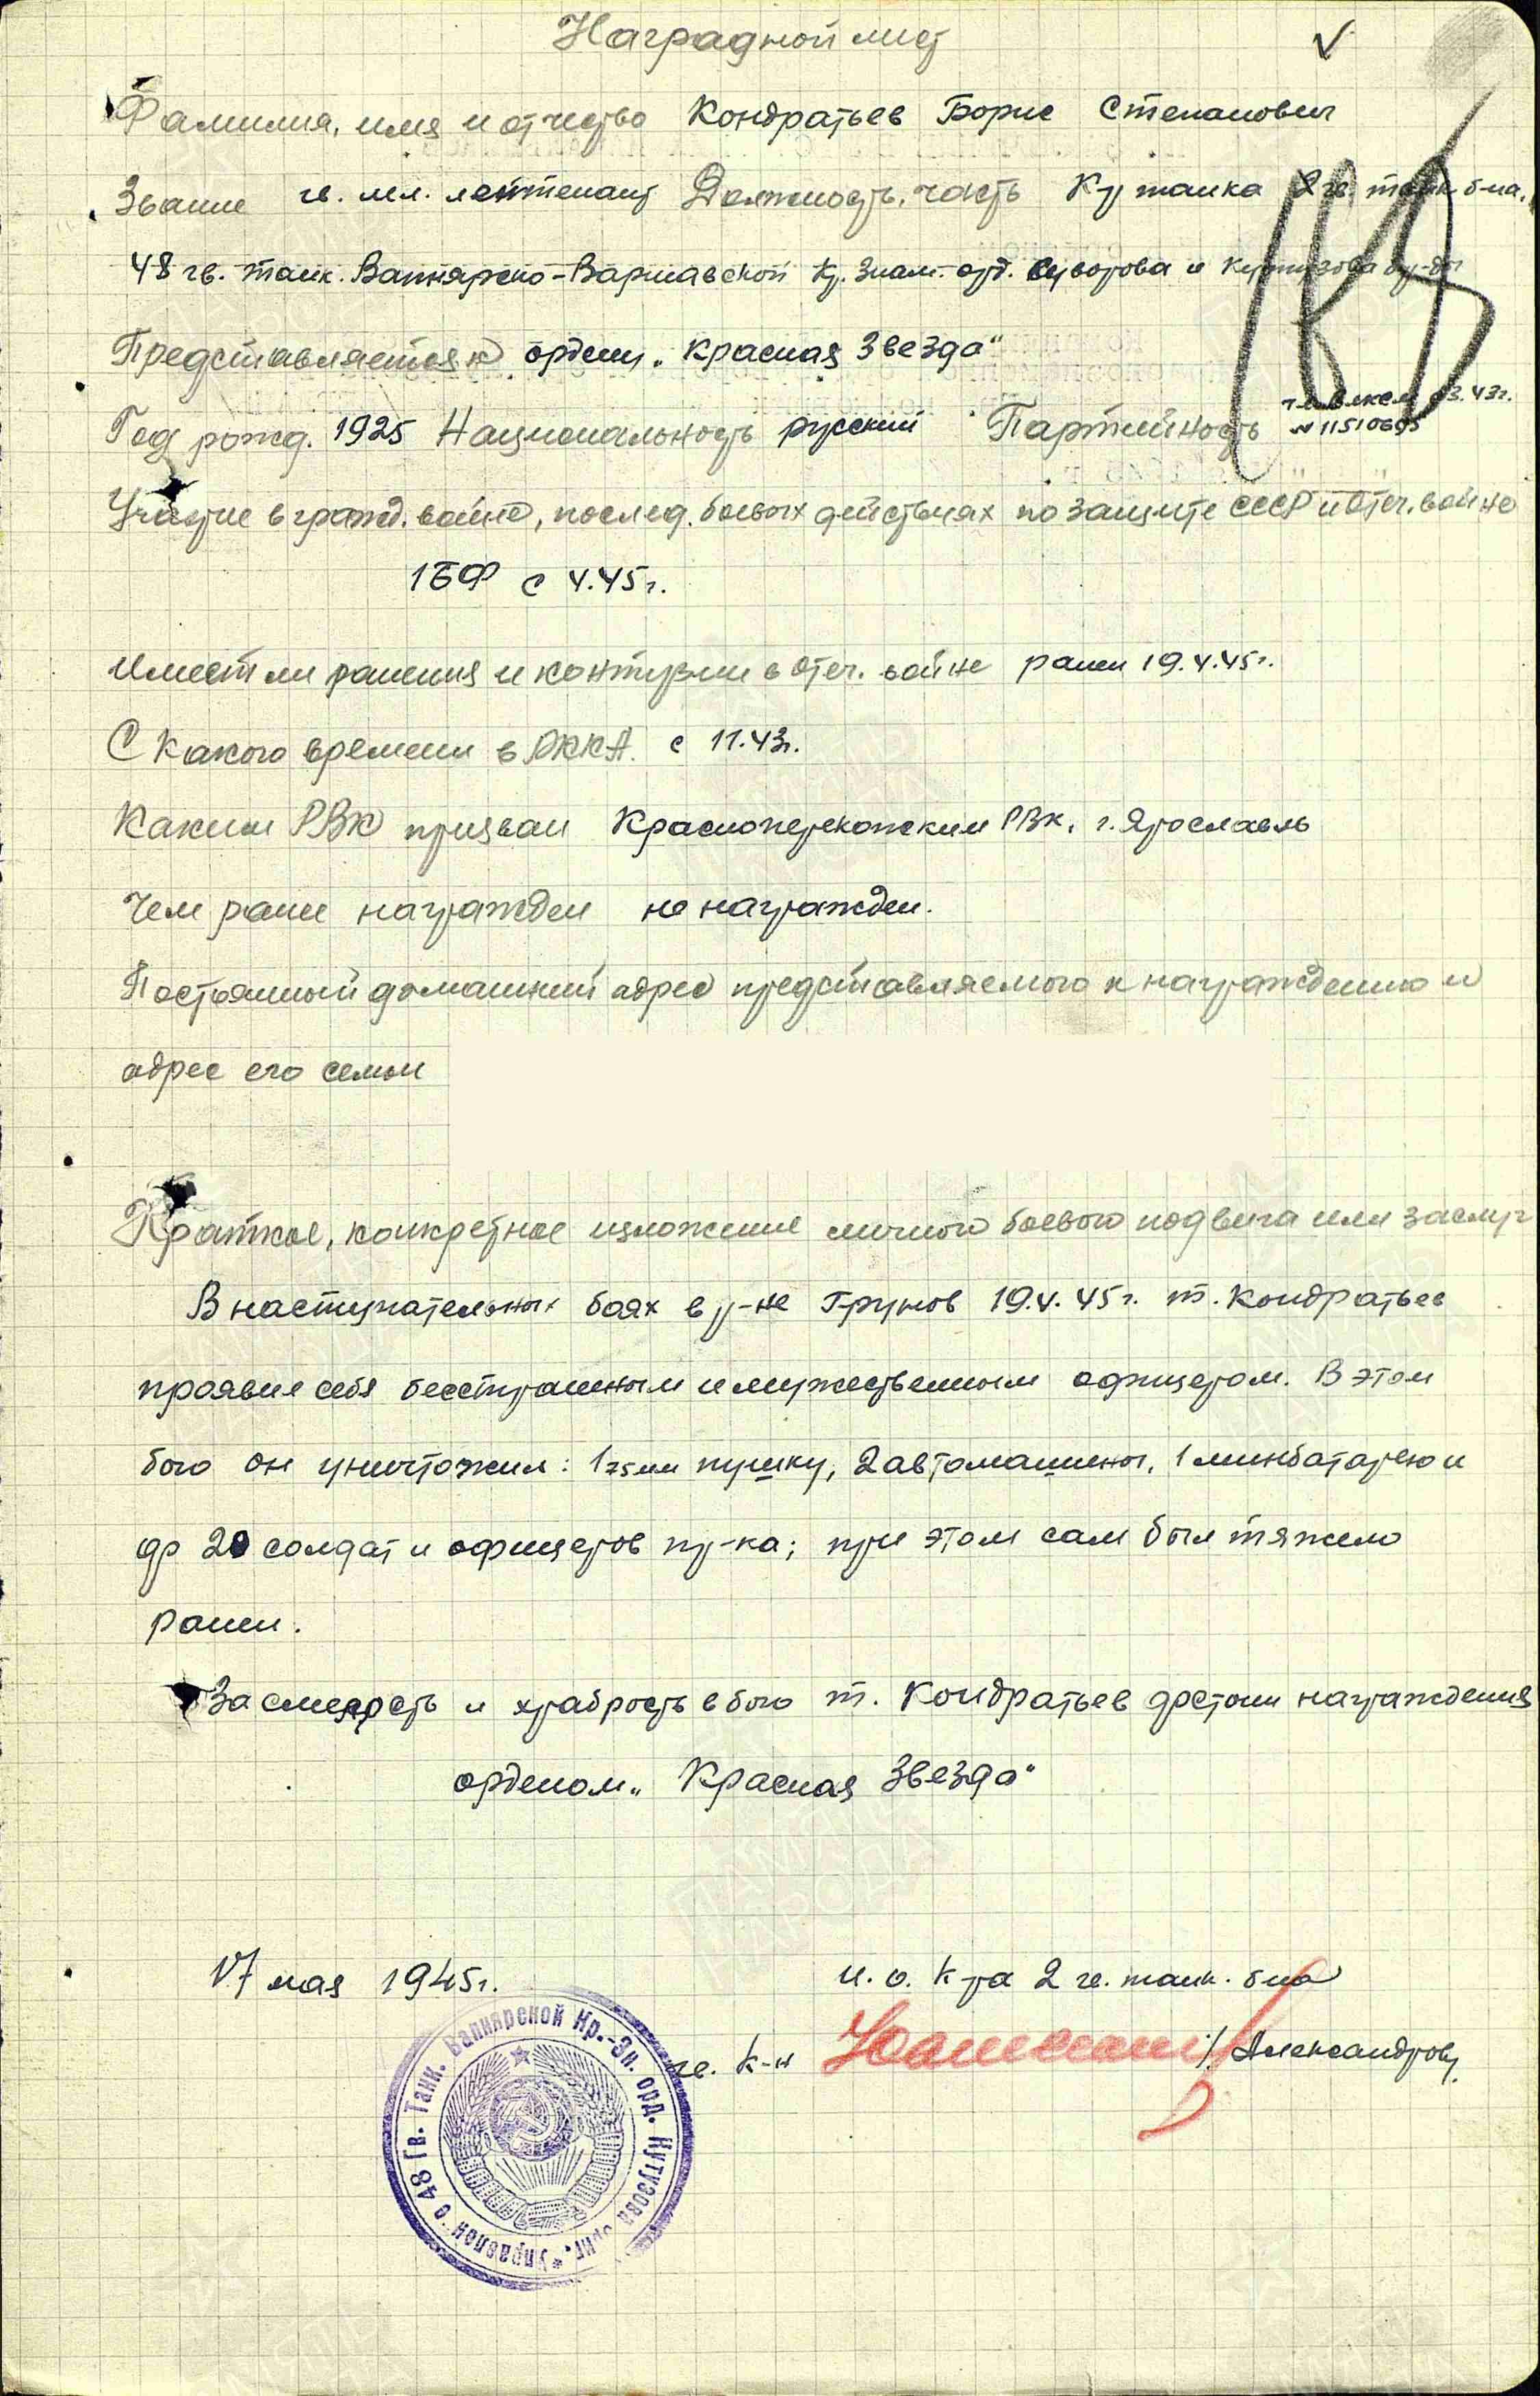 Наградной лист
Фамилия, имя и отчество Кондратьев Борис Степанович
Звание гв. мл. лейтенант Должность, часть К-р танка 2 гв. танк. б-на,
48 гв. танк. Вапнярско-Варшавской Кр. Знам. орд. Суворова и Кутузова бр-ды
Представляется к ордену „Красная Звезда"
Год рожд. 1925 Национальность русский Партийность чл. ВЛКСМ с 3.43г.
№ 11510695
Участие в гражд. войне, послед. боевых действиях по защите СССР и отеч. войне
1БФ с 4.45г.
Имеет ли ранения и контузии в отеч. войне ранен 19.4.45г.
С какого времени в РККА. с 11.43г.
Каким РВК призван Красноперекопским РВК, г. Ярославль
Чем ранее награжден не награжден.
Постоянный домашний адрес представляемого к награждению и
адрес его семьи
Краткое, конкретное изложение личного боевого подвига или заслуг
В наступательных боях в р-не Грунов 19.4.45г. т. Кондратьев
проявил себя бесстрашным и мужественным офицером. В этом
бою он уничтожил: 1 75мм пушку, 2 автомашины, 1 минбатарею и
до 20 солдат и офицеров пр-ка; при этом сам был тяжело
ранен.
За смелость и храбрость в бою т. Кондратьев достоин награждения
орденом „Красная Звезда"
17 мая 1945г.
и. о. к-ра 2 гв. танк. б-на
гв. к-н /Александров/
Управлен. 48 Гв. Танк. Вапнярской Кр.-Зн. орд. Кутузова бриг.